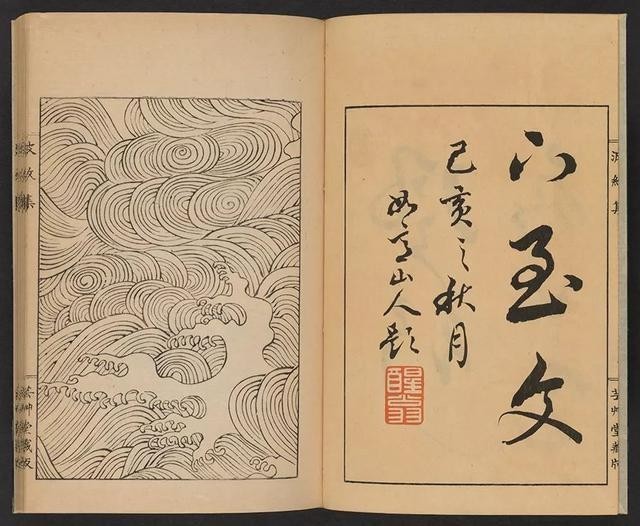 波紋集
芸艸堂藏版
下至文
己亥之秋月
如山人題
波紋集
芸艸堂藏版